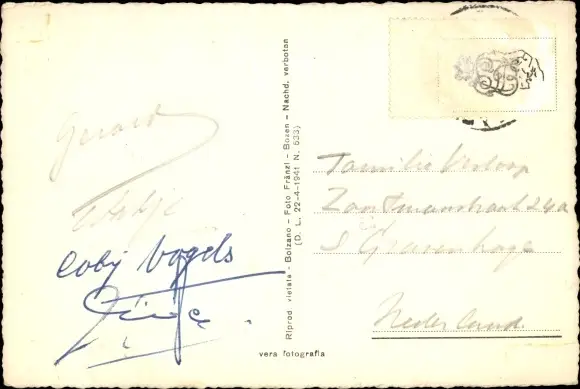 Gerard
Coby Vogels
Riprod. vietata - Bolzano - Foto Fränzl - Bozen - Nachd. verboten
(D. L. 22-4-1941 N. 633)
Familie Verloop
Zoutmanstraat 24a
S Gravenhage
Nederland.
vera fotografia